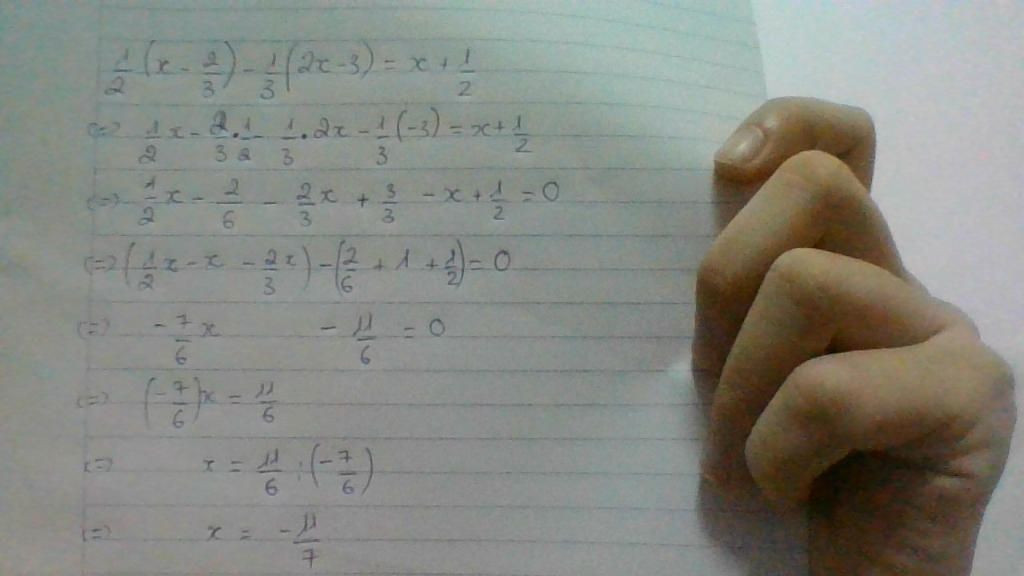 1/2 (x - 2/3) - 1/3 (2x - 3) = x + 1/2
<=> 1/2 x - 2/3 . 1/2 - 1/3 . 2x - 1/3 (-3) = x + 1/2
<=> 1/2 x - 2/6 - 2/3 x + 3/3 - x + 1/2 = 0
<=> (1/2 x - x - 2/3 x) - (2/6 + 1 + 1/2) = 0
<=> - 7/6 x - 11/6 = 0
<=> (-7/6) x = 11/6
<=> x = 11/6 : (-7/6)
<=> x = - 11/7